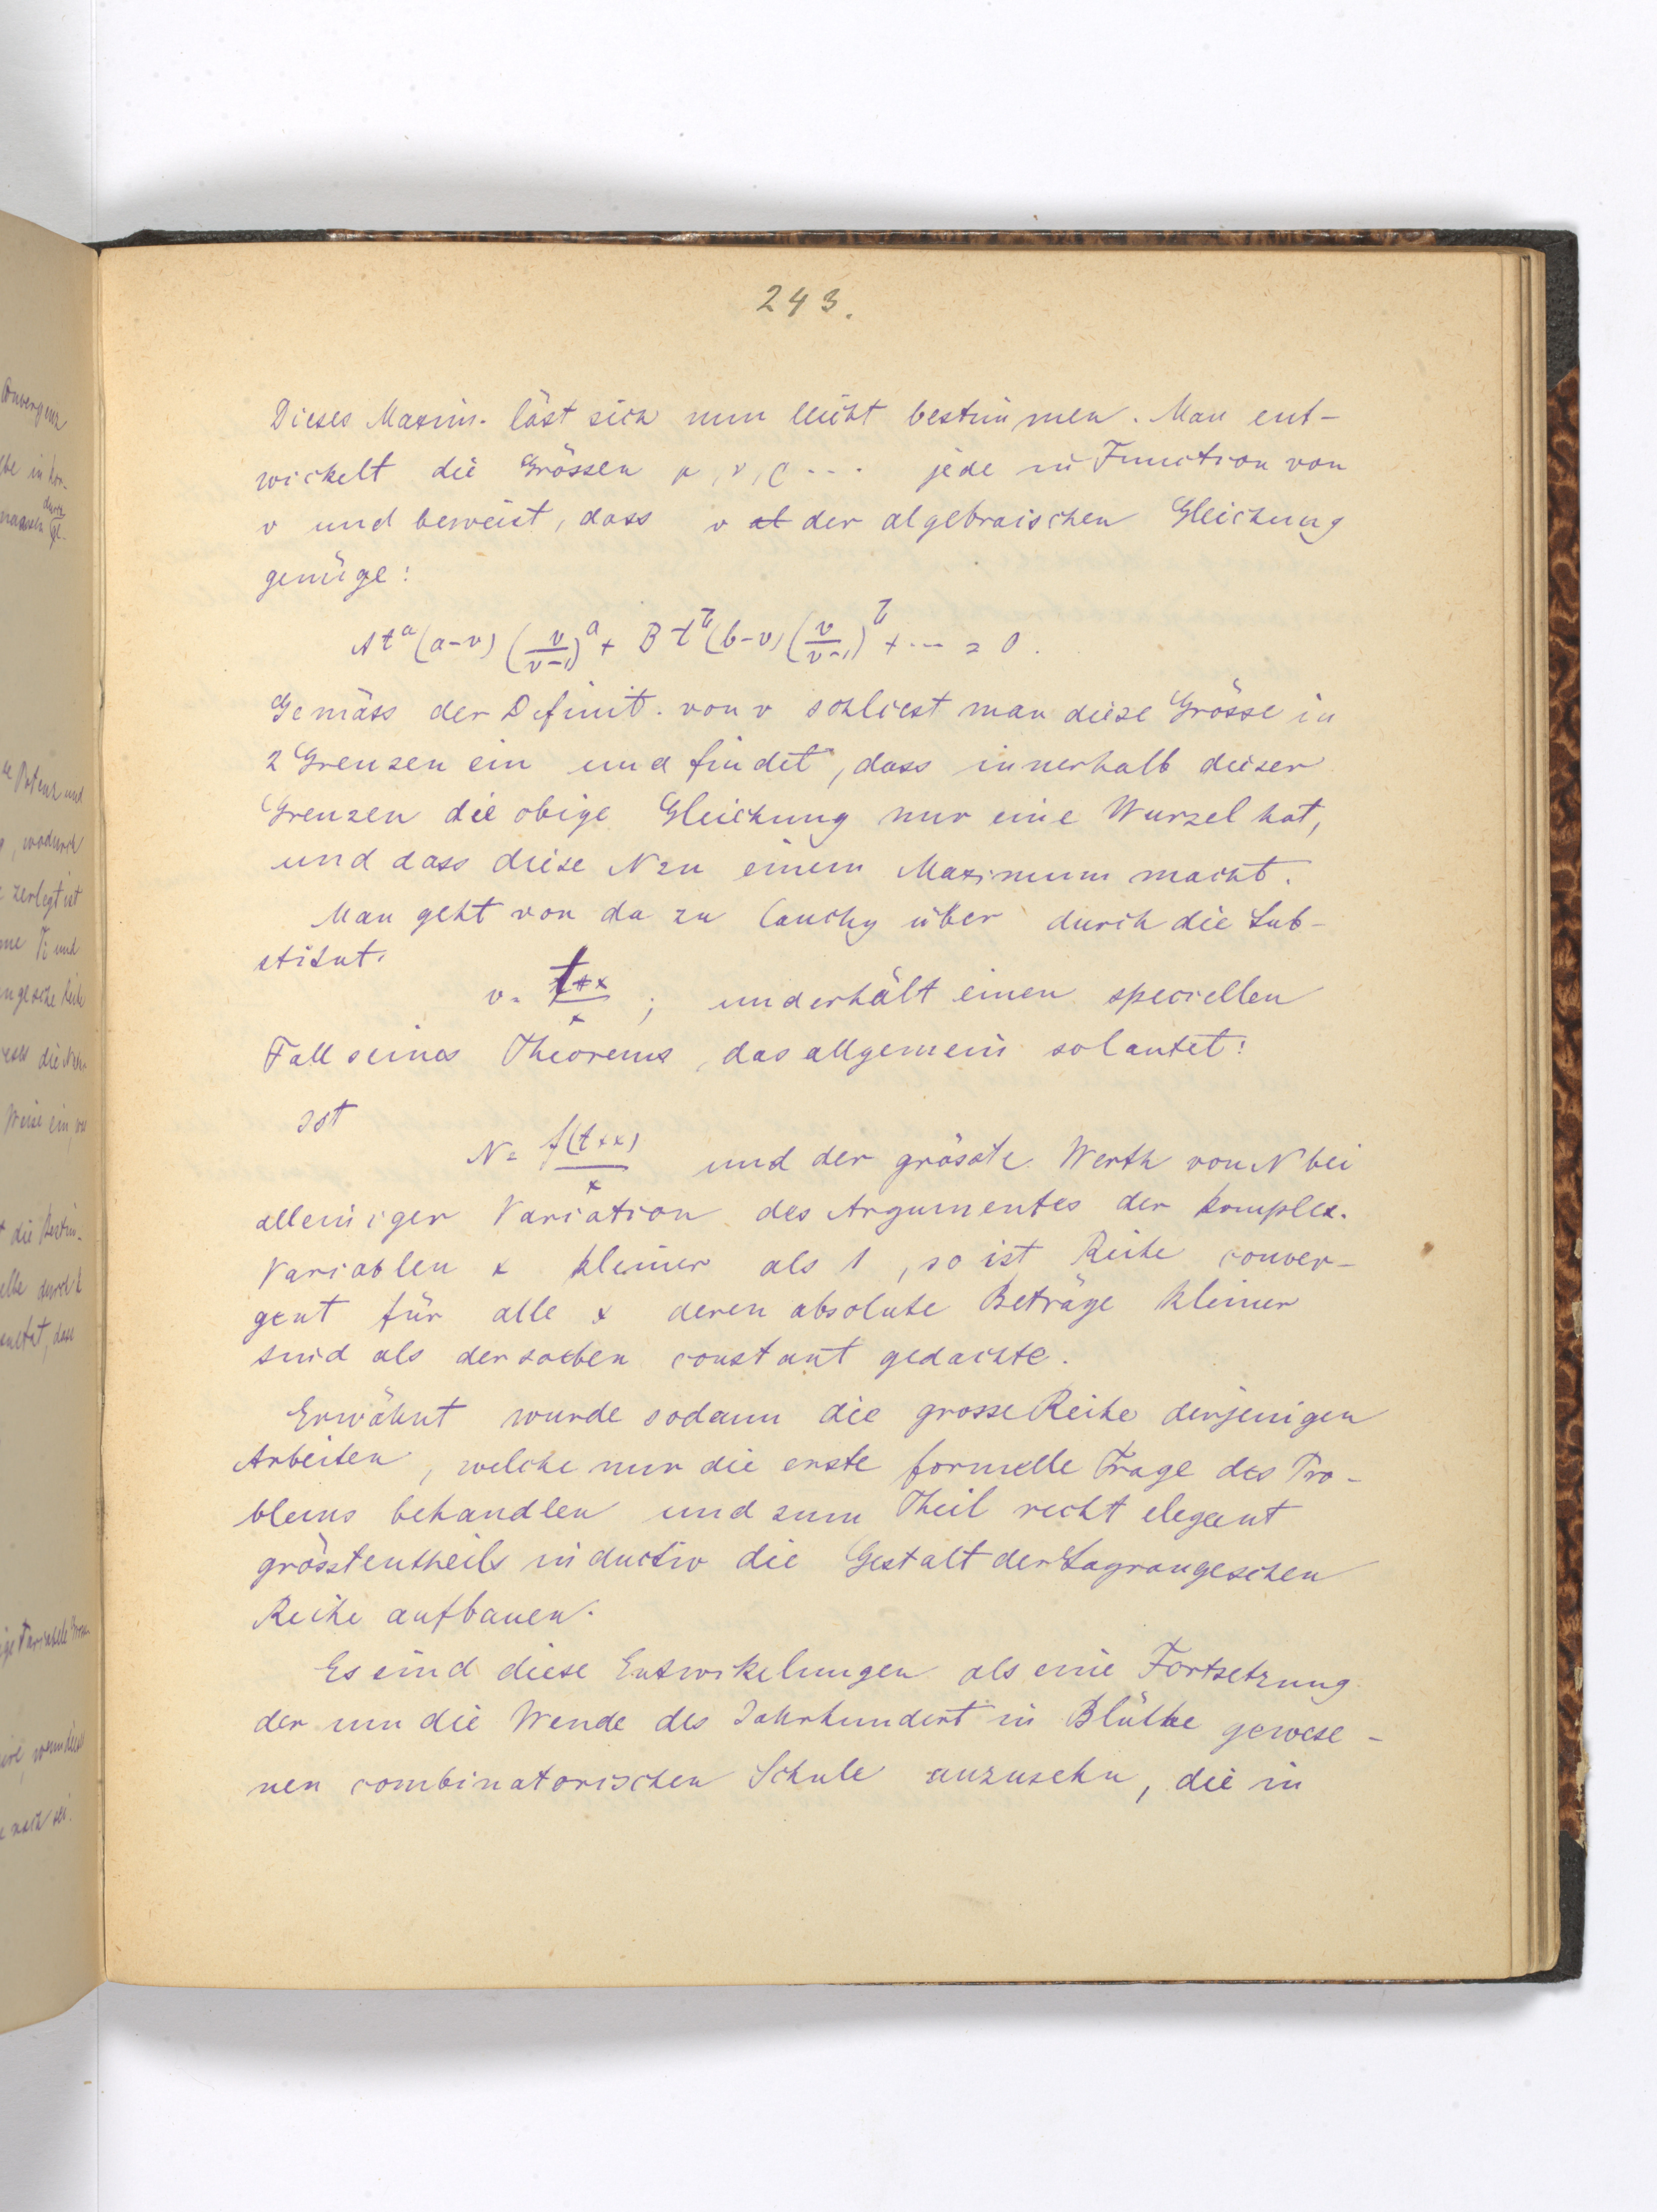 243.
Dieses Maxim. läst sich nun leicht bestimmen. Man ent-
wickelt die Grössen μ, ν, ρ ... jede in Function von
v und beweist, dass v der algebraischen Gleichung
genüge:
A t^a (a-v) (v/(v-1))^a + B t^b (b-v) (v/(v-1))^b + ... = 0.
Gemäss der Definit. von v schliest man diese Grösse in
2 Grenzen ein und findet, dass innerhalb dieser
Grenzen die obige Gleichung nur eine Wurzel hat,
und dass diese N zu einem Maximum macht.
Man geht von da zu Cauchy über durch die Sub-
stitut.
v = (t+x)/x ; und erhält einen speciellen
Fall seines Theorems, das allgemein so lautet:
Ist
N = f(t+x)/x und der grösste Werth von N bei
alleiniger Variation des Argumentes der komplex.
Variablen x kleiner als 1, so ist Reihe conver-
gent für alle x deren absolute Beträge kleiner
sind als der soeben constant gedachte.
Erwähnt wurde sodann die grosse Reihe derjenigen
Arbeiten, welche nur die erste formelle Frage des Pro-
blems behandlen und zum Theil recht elegant
grösstentheils inductiv die Gestalt der Lagrangeschen
Reihe aufbauen.
Es sind diese Entwikelungen als eine Fortsetzung
der um die Wende des Jahrhundert in Blüthe gewese-
nen combinatorischen Schule anzusehn, die in